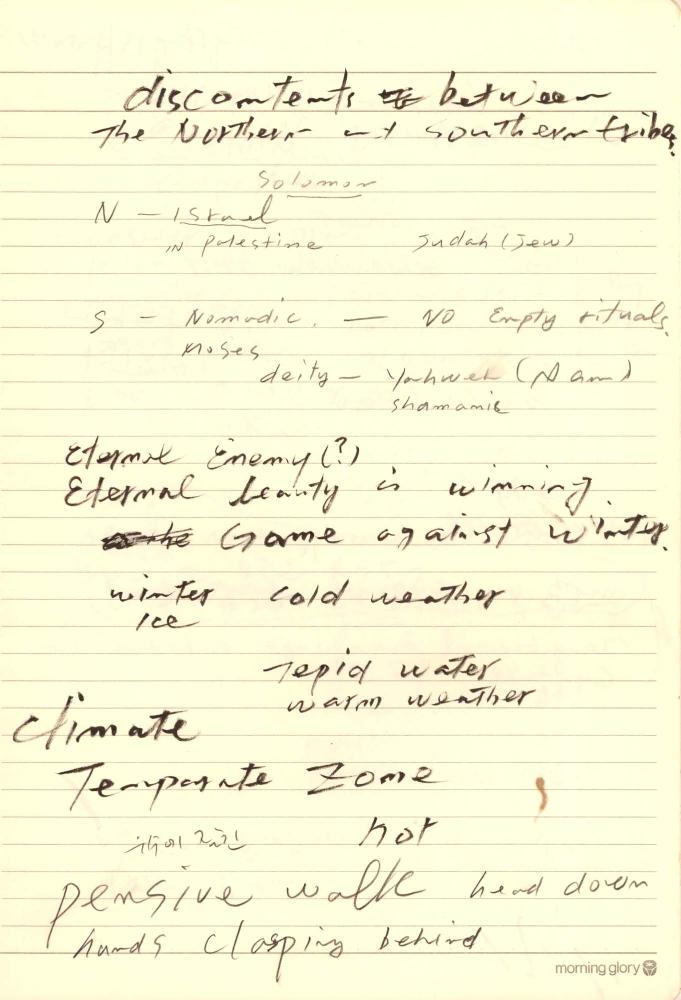 discontents between
The Northern and southern tribes.
Solomon
N — Israel
IN Palestine Judah (Jew)
S — Nomadic. — NO Empty rituals.
Moses
deity — Yahweh
shamanic
Eternal Enemy (?)
Eternal beauty is winning
Game against winter.
winter cold weather
Ice
Tepid water
warm weather
climate
Temparate Zone
hot
pensive walk head down
hands clasping behind
morning glory